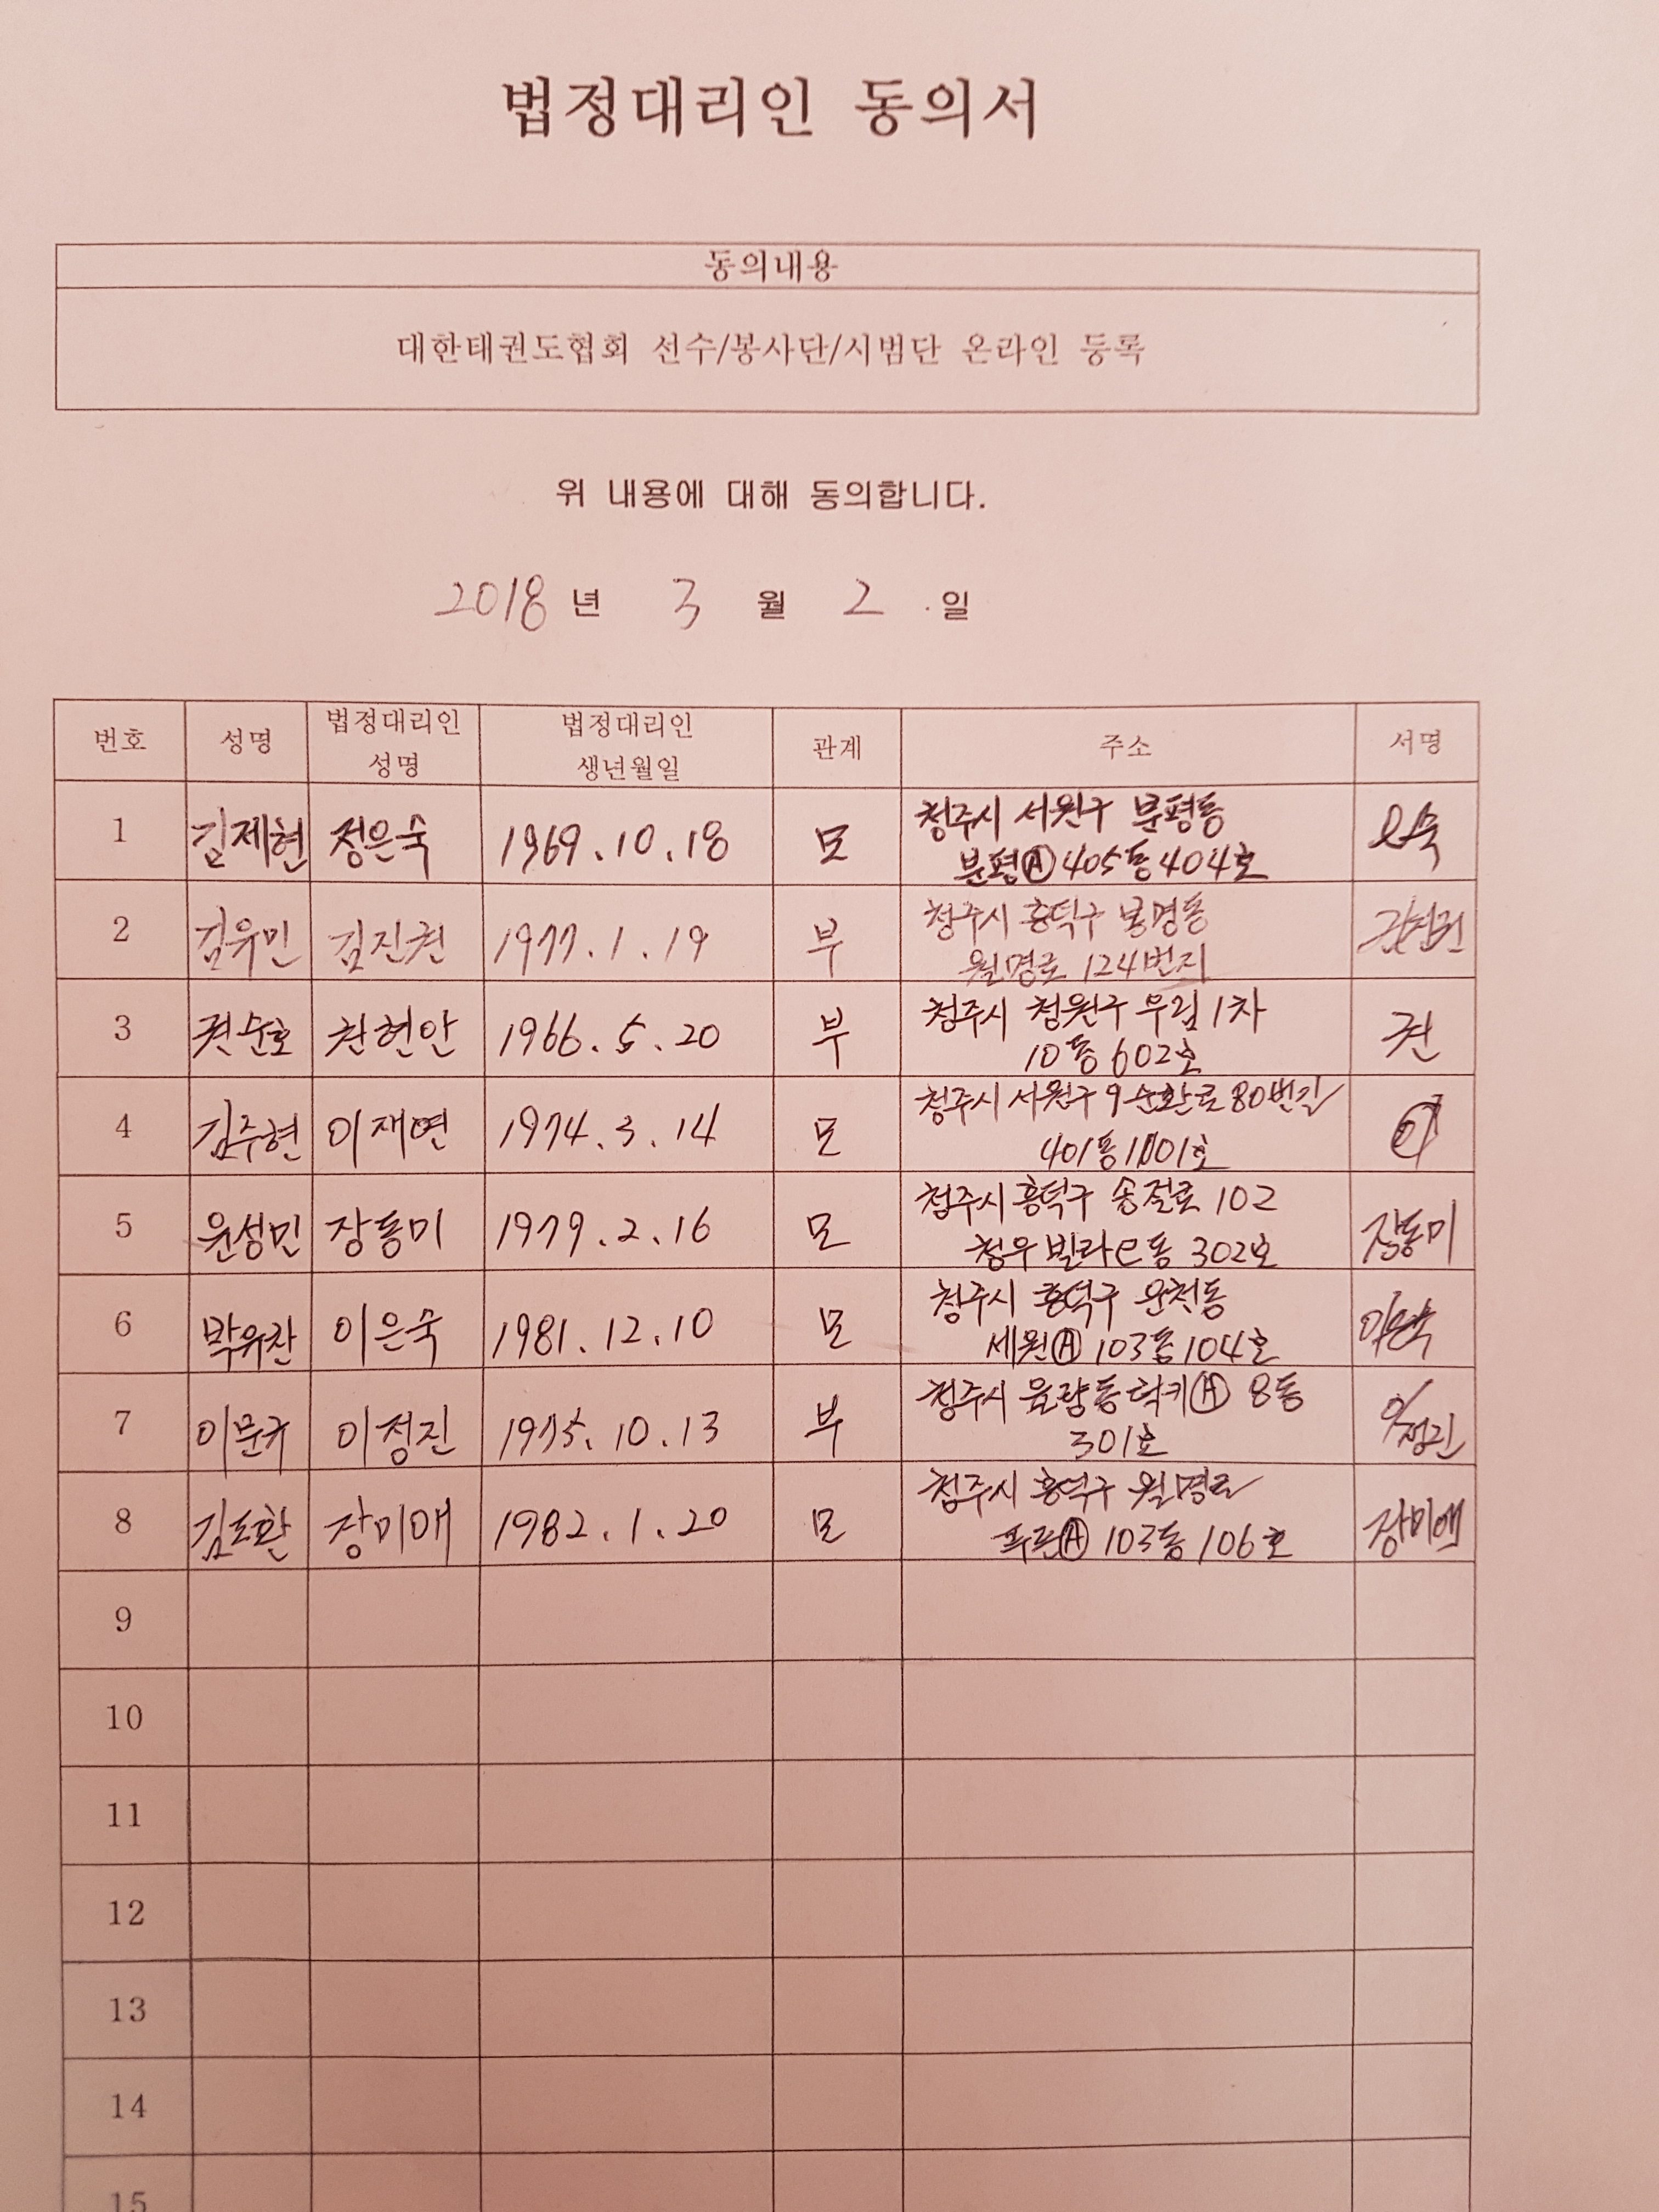 법정대리인 동의서
동의내용
대한태권도협회 선수/봉사단/시범단 온라인 등록
위 내용에 대해 동의합니다.
2018 년 3 월 2 일
번호 성명 법정대리인 성명 법정대리인 생년월일 관계 주소 서명
1 김제현 정은숙 1969.10.18 모 청주시 서원구 분평동
분평Ⓐ 405동 404호
2 김유민 김진권 1977.1.19 부 청주시 흥덕구 봉명동
월명로 124번지
3 권순호 현안 1966.5.20 부 청주시 청원구 우림1차
10동 602호 권
4 김주현 이재연 1974.3.14 모 청주시 서원구 순환로 80번길
401동 1101호 이
5 윤성민 장동미 1979.2.16 모 청주시 흥덕구 송절로 102
청우빌라 동 302호 장동미
6 박유찬 이은숙 1981.12.10 모 청주시 흥덕구 운천동
세원Ⓐ 103동 104호 이은숙
7 이문규 이정진 1975.10.13 부 청주시 율량동 럭키Ⓐ 8동
301호 이정진
8 김도환 장미애 1982.1.20 모 청주시 흥덕구 월명로
푸른Ⓐ 103동 106호 장미애
9
10
11
12
13
14
15